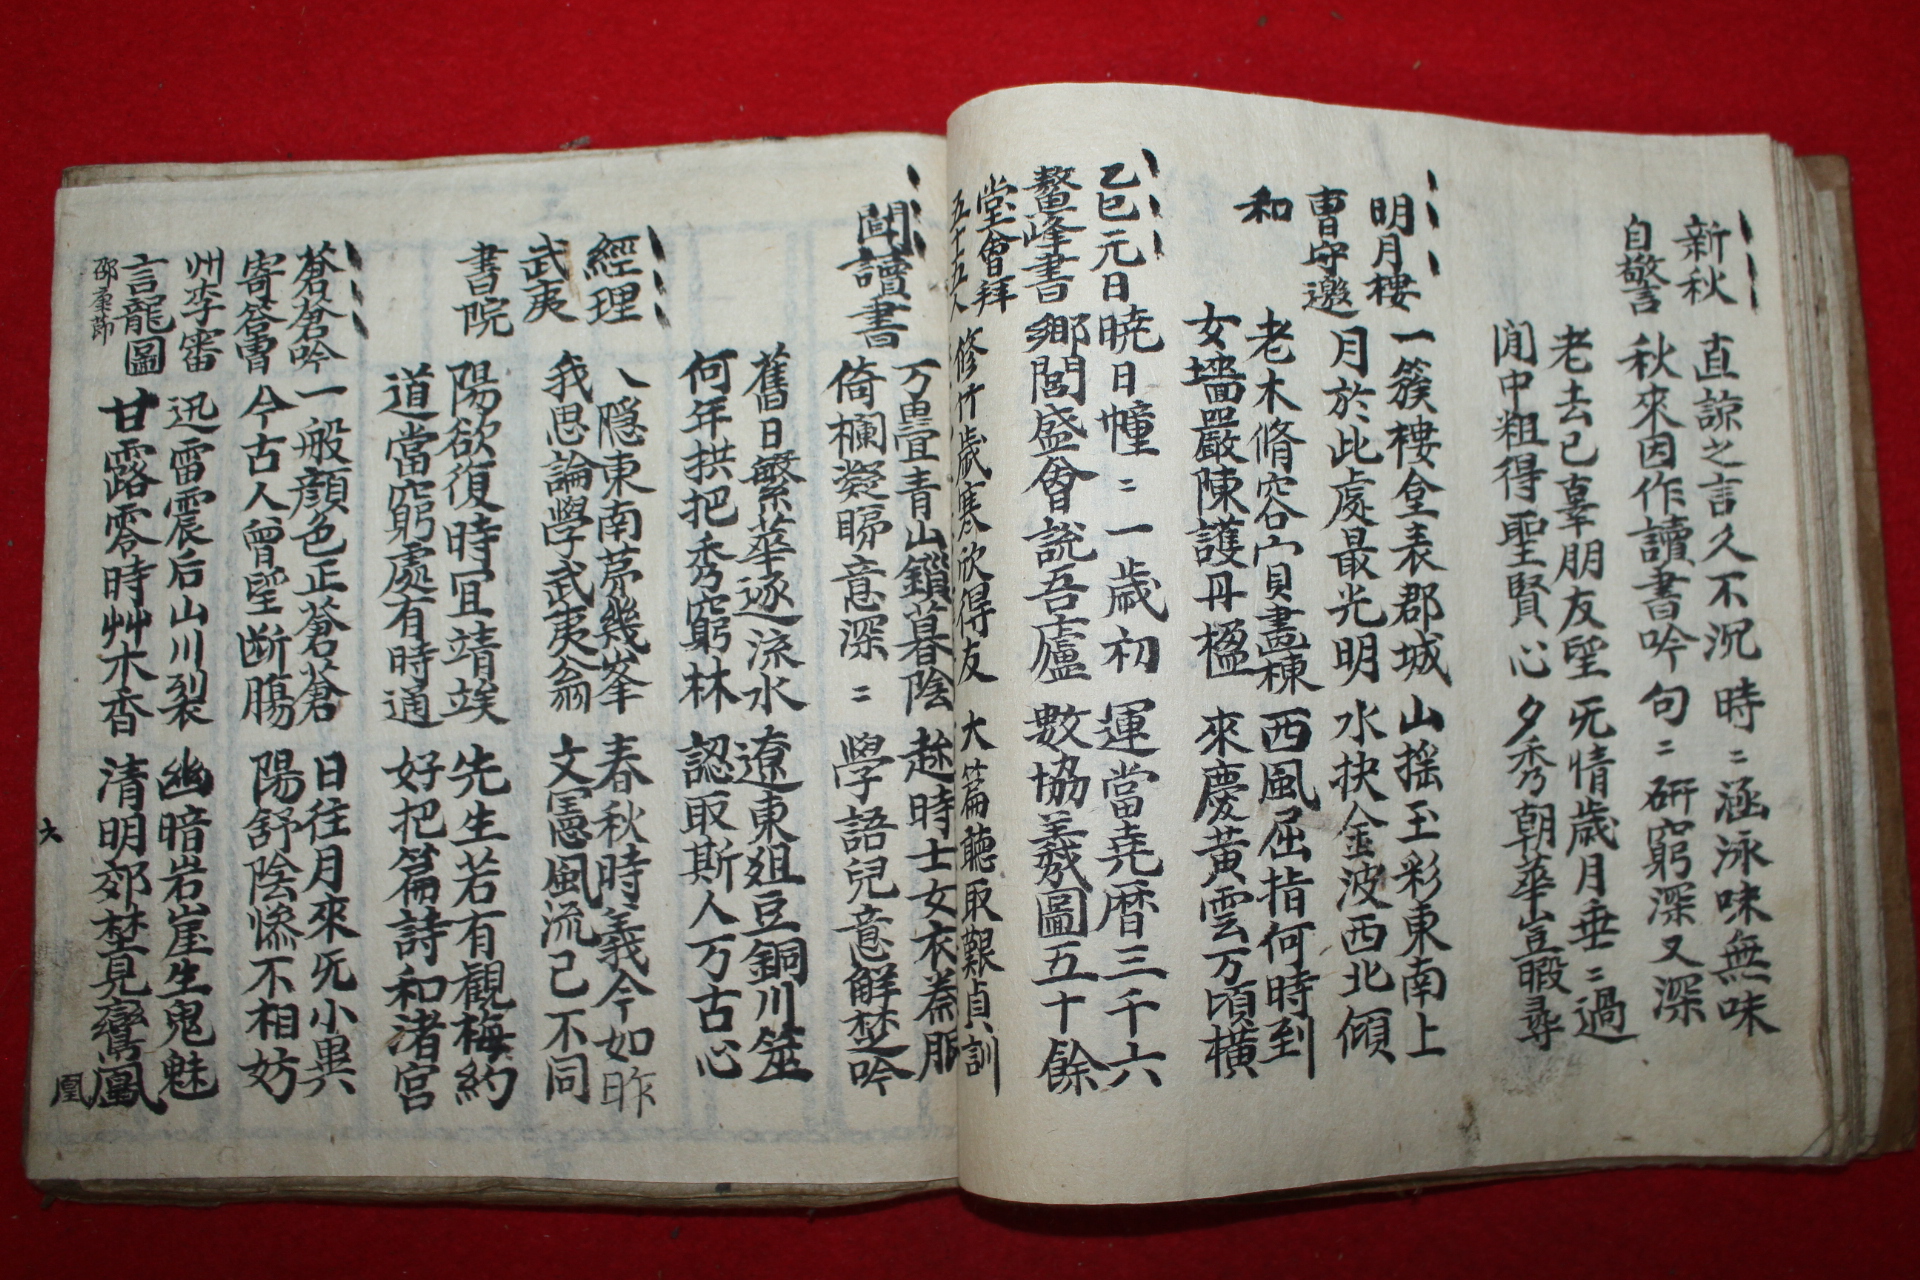 新秋
自警
直諒之言久不沉 時〻涵泳味無味
秋來因作讀書吟 句〻硏窮深又深
老去已辜朋友望 旡情歲月垂〻過
閒中粗得聖賢心 夕秀朝華豈暇尋
明月樓
曺守邀
和
一簇樓臺表郡城 山搖玉彩東南上
月於此處最光明 水抉金波西北傾
老木脩容宀貝畫棟 西風屈指何時到
女墻嚴陳護丹楹 來慶黃雲万頃橫
乙巳元日
鰲峰書
堂會拜
五十五人
曉日曈〻一歲初 運當堯曆三千六
鄕閭盛會說吾廬 數協羲圖五十餘
修竹歲寒欣得友 大篇聽取艱貞訓
聞讀書
万疊靑山鎖暮陰 趂時士女衣羞服
倚欄凝睇意深〻 學語兒意解楚吟
舊日繁華逐流水 遼東俎豆銅川筮
何年拱把秀窮林 認取斯人万古心
經理
武夷
書院
八隱東南夢幾峯 春秋時義今如昨
我思論學武夷翁 文憲風流己不同
陽欲復時冝靖竢 先生若有觀梅約
道當窮處有時通 好把篇詩和渚宮
蒼蒼吟
寄答曺
州李審
言龍圖
邵康節
一般顔色正蒼蒼 日往月來旡小異
今古人曾望断膓 陽舒陰慘不相妨
迅雷震后山川裂 幽暗岩崖生鬼魅
甘露零時艸木香 清明郊埜見鸞凰
凰
六